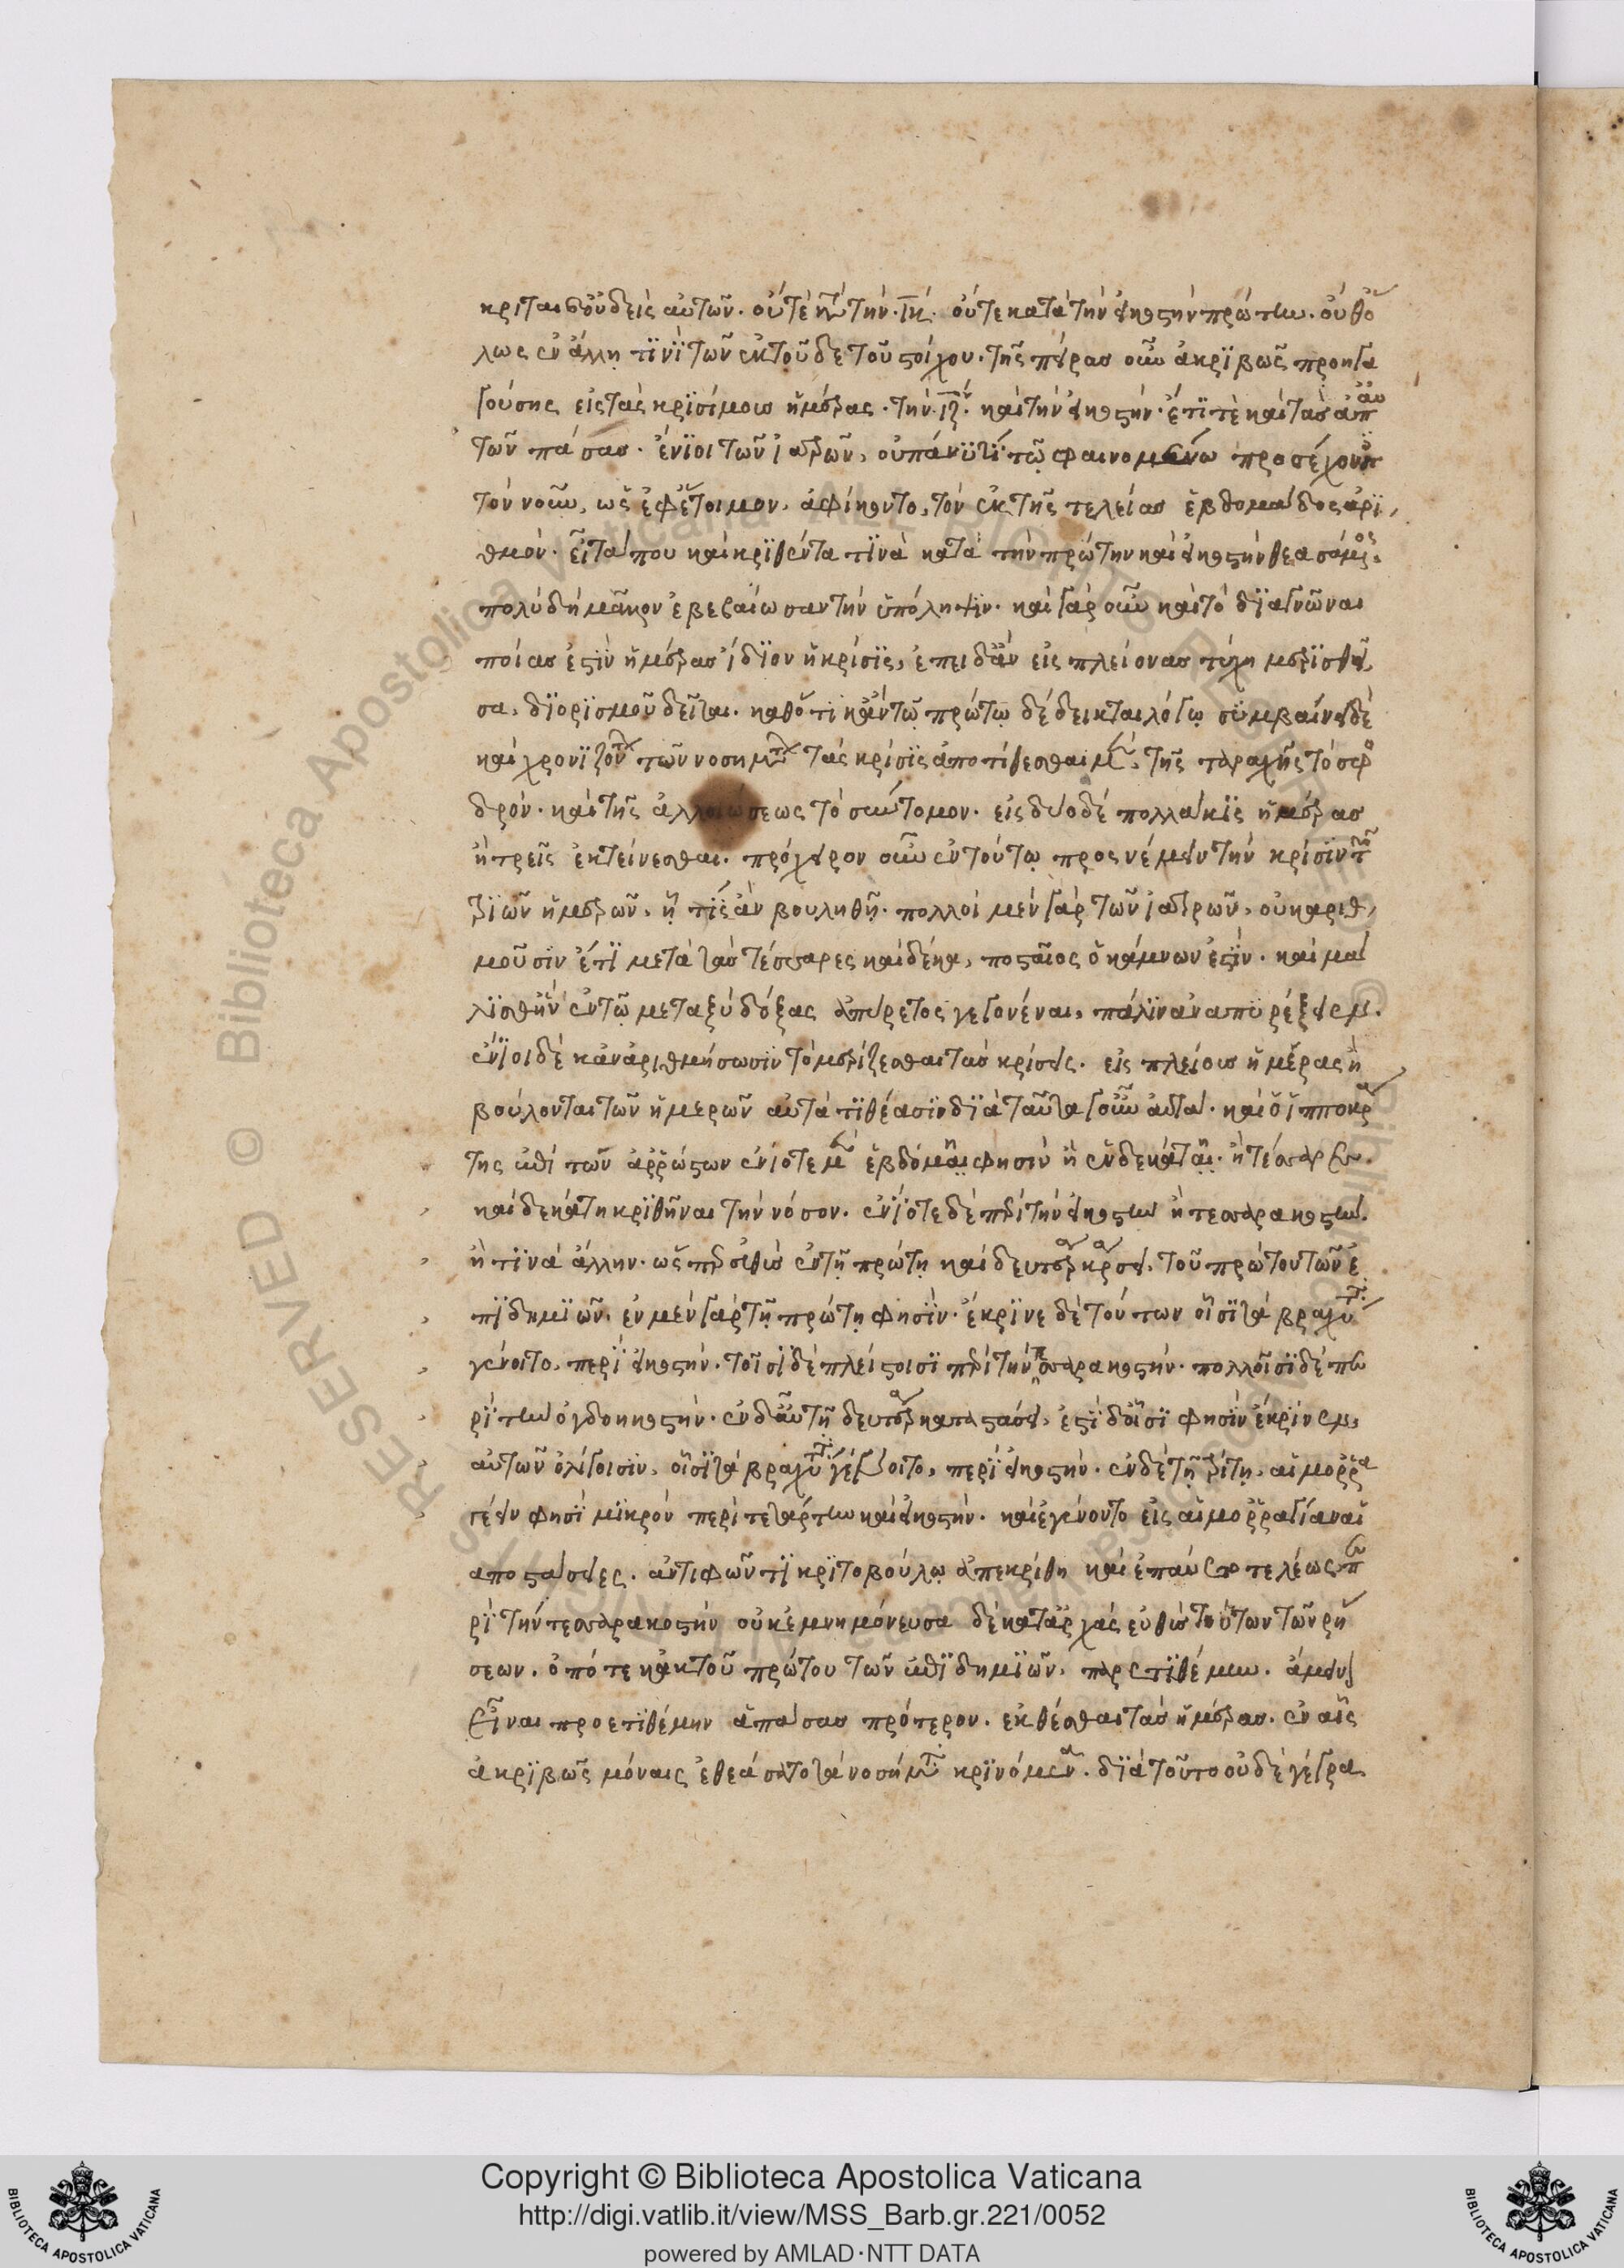 κριται δ' οὐδεὶς αὐτῶν. οὔτε κατὰ τὴν ιη. οὔτε κατὰ τὴν εἰκοστὴν πρώτην. οὔθ' ὅ
λως ἐν ἄλλῃ τινὶ τῶν ἐκ τοῦδε τοῦ στοίχου. τῆς πείρας οὖν ἀκριβῶς προηγ
γούσης εἰς τὰς κρισίμους ἡμέρας. τὴν ιζ. καὶ τὴν εἰκοστὴν. ἔτι τὲ καὶ τὰς ἀπ' αὐ
τῶν πάσας. ἔνιοι τῶν ἰατρῶν, οὐ πάνυ τι τῷ φαινομένῳ προσέχοντες
τὸν νοῦν, ὡς ἐφ' ἕτοιμον, ἀφίκοντο, τὸν ἐκ τῆς τελείας ἑβδομάδος ἀρι
θμόν. εἶτά που καὶ κριθέντα τινὰ κατὰ τὴν πρώτην καὶ εἰκοστὴν θεασάμενοι.
πολὺ δὴ μᾶλλον ἐβεβαίωσαν τὴν ὑπόληψιν. καὶ γὰρ οὖν καὶ τὸ διαγνῶναι
ποίας ἐστὶν ἡμέρας ἴδιον ἡ κρίσις, ἐπειδὰν εἰς πλείονας τύχῃ μερισθεῖ
σα, διορισμοῦ δεῖται. καθότι κἀν τῷ πρώτῳ δέδεικται λόγῳ συμβαίνει δὲ
καὶ χρονιζόντων τῶν νοσημάτων τὰς κρίσεις ἀποτίθεσθαι μὲν, τῆς ταραχῆς τὸ σφο
δρόν. καὶ τῆς ἀλλοιώσεως τὸ σύντομον. εἰς δύο δὲ πολλάκις ἡμέρας
ἢ τρεῖς ἐκτείνεσθαι. πρόχειρον οὖν ἐν τούτῳ προσνέμειν τὴν κρίσιν τῶν
τριῶν ἡμερῶν, ᾗ τις ἂν βουληθῇ. πολλοὶ μὲν γὰρ τῶν ἰατρῶν, οὐκ ἀριθ
μοῦσιν ἔτι μετὰ τὰς τέσσαρες καὶ δέκα, ποσταῖος ὁ κάμνων ἐστίν. καὶ μά
λισθ' ἢν ἐν τῷ μεταξὺ δόξας ἀπύρετος γεγονέναι, πάλιν ἀναπυρέξειεν.
ἔνιοι δὲ κἂν ἀριθμήσωσιν τὸ μερίζεσθαι τὰς κρίσεις. εἰς πλείους ἡμέρας ᾗ
βούλονται τῶν ἡμερῶν αὐτὰ τιθέασιν διὰ ταῦτα γοῦν αὐτὰ. καὶ ὁ ἱπποκρά
της ἐπὶ τῶν ἀῤῥώστων ἐνίοτε μὲν ἑβδομαῖά φησιν ἢ ἑνδεκαταῖα. ἢ τέσσαρες
καὶ δεκάτη κριθῆναι τὴν νόσον. ἐνίοτε δὲ περὶ τὴν εἰκοστὴν ἢ τεσσαρακοστὴν.
ἢ τινὰ ἄλλην. ὥσπερ εὐθὺς ἐν τῇ πρώτῃ καὶ δευτέρᾳ κράσει, τοῦ πρώτου τῶν ἐ
πιδημιῶν. ἐν μὲν γὰρ τῇ πρώτῃ φησὶν. ἔκρινε δὲ τούτων οἷσι τὰ βραχύτατα
γένοιτο, περὶ εἰκοστὴν. τοῖσι δὲ πλείστοισι περὶ τὴν τεσσαρακοστὴν. πολλοῖσι δὲ πε
ρὶ τὴν ὀγδοηκοστὴν. ἐν δ' αὖ τῇ δευτέρᾳ καταστάσει, ἔστι δ' οἷσί φησιν ἔκρινεν,
αὐτῶν ὀλίγοισιν, οἷσι τὰ βραχύτατα γένοιτο, περὶ εἰκοστὴν. ἐν δὲ τῇ τρίτῃ, αἱμοῤῥα
γέειν φησὶ μικρὸν περὶ τετάρτην καὶ εἰκοστὴν. καὶ ἐγένοντο εἰς αἱμοῤῥαγίαν αἱ
αποστάσιες. ἀντιφῶντι κριτοβούλῳ ἀπεκρίθη καὶ ἐπαύσατο τελέως πε
ρὶ τὴν τεσσαρακοστὴν οὐκ ἐμνημόνευσα δὲ κατ' ἀρχὰς εὐθὺς τούτων τῶν ῥή
σεων. ὁπότε κἀκ τοῦ πρώτου τῶν ἐπιδημιῶν, παρετιθέμην. ἄμεινον
εἶναι προετιθέμην ἁπάσας πρότερον. ἐκθέσθαι τὰς ἡμέρας. ἐν αἷς
ἀκριβῶς μόναις ἐθεάσατο τὰ νοσήματα κρινόμενα. διὰ τοῦτο οὐδὲ γέγρα
Copyright © Biblioteca Apostolica Vaticana
http://digi.vatlib.it/view/MSS_Barb.gr.221/0052
powered by AMLAD·NTT DATA